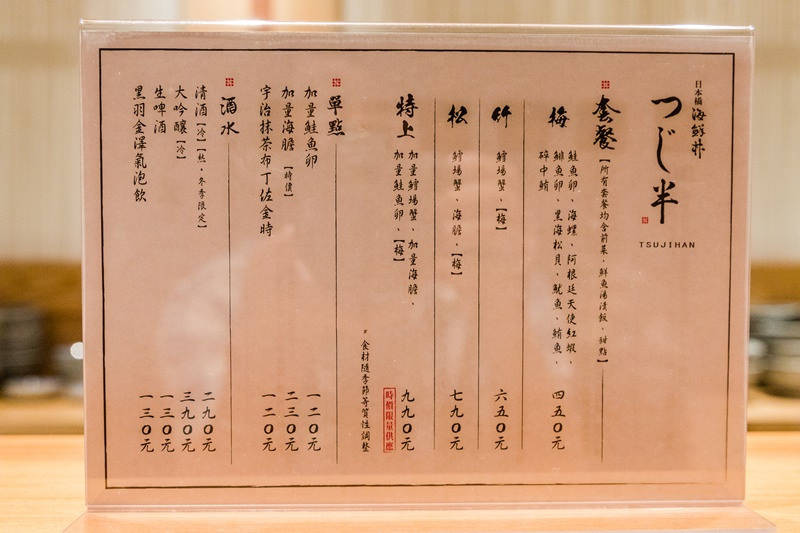 日本橋 海鮮丼
つじ半
TSUJIHAN
套餐【所有套餐均含前菜，鮮魚湯漬飯、甜點】
梅
鮭魚卵、海螺、阿根廷天使紅蝦、
鯡魚卵、黑海松貝、魷魚、鮪魚、
碎中鮪
四五〇元
竹
鱈場蟹、【梅】
六五〇元
松
鱈場蟹、海膽、【梅】
七九〇元
特上
加量鱈場蟹、加量海膽、
加量鮭魚卵、【梅】
九九〇元
時價限量供應
*食材隨季節等質性調整
單點
加量鮭魚卵 一二〇元
加量海膽【特價】 二三〇元
宇治抹茶布丁佐金時 一二〇元
酒水
清酒【冷】【熱・冬季限定】 二九〇元
大吟釀【冷】 三九〇元
生啤酒 一三〇元
黑羽金澤氣泡飲 一三〇元